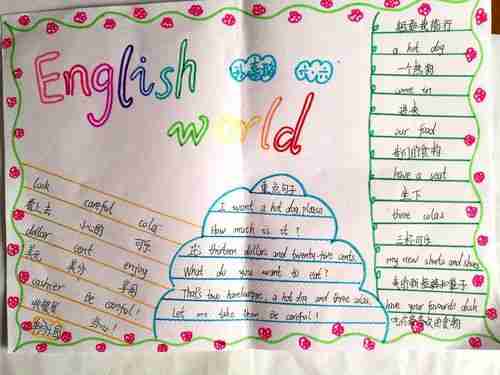 English
world
look
careful
看上去
小心的
cola
dollar
可乐
cent
美元
美分
enjoy
cashier
享用
收银员
Be careful!
小心!
重点句子
I want a hot dog, please.
How much is it?
It's thirteen dollars and twenty-five cents.
What do you want to eat?
That's two hamburgers, a hot dog and three colas.
Let me take them. Be careful!
a hot dog
一个热狗
come in
进来
our food
我们的食物
have a seat
坐下
three colas
三杯可乐
my new shorts and shoes
我的新短裤和鞋子
have your favourite dish
吃你最喜欢的食物